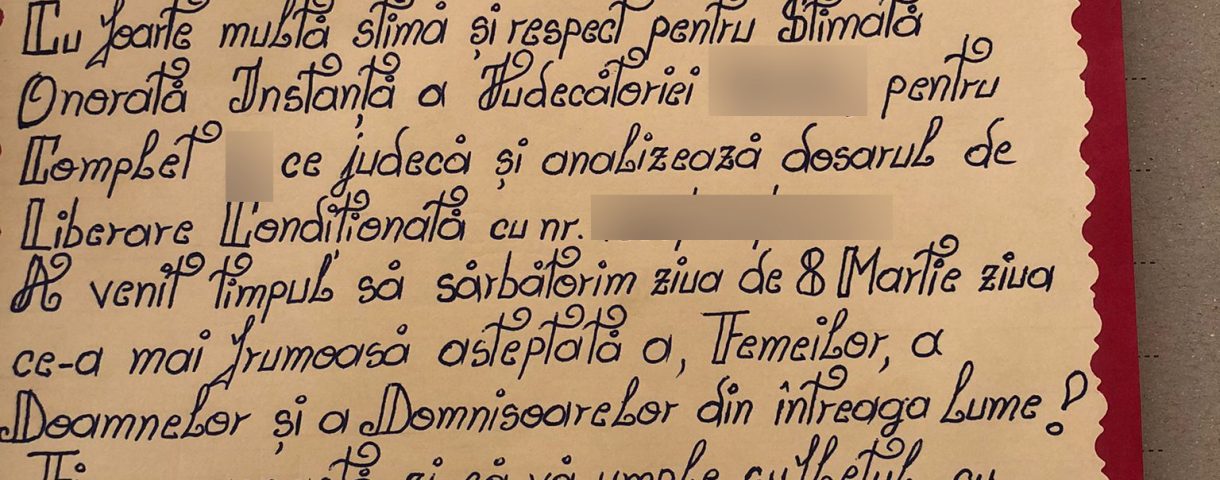 Cu foarte multă stimă și respect pentru Stimată
Onorată Instanță a Judecătoriei pentru
Complet ce judecă și analizează dosarul de
Liberare Condiționată cu nr.
A venit timpul să sărbătorim ziua de 8 Martie ziua
ce-a mai frumoasă asteptată a, Femeilor, a
Doamnelor și a Domnisoarelor din întreaga lume!
și că vă umple sufletul cu